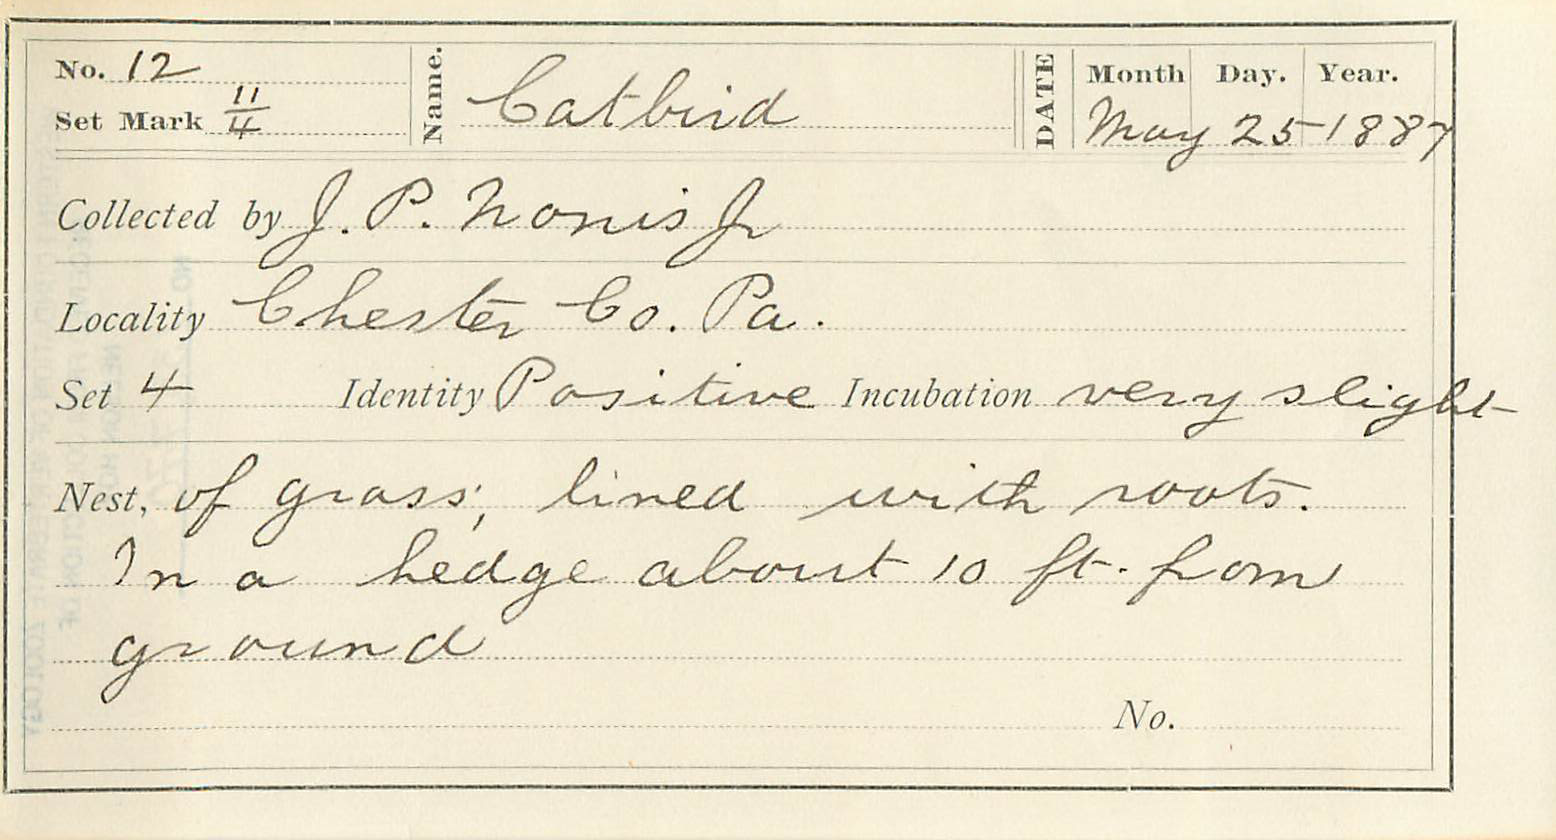 No. 12
Set Mark 11/4
Name. Catbird
DATE Month Day. Year.
May 25 1887
Collected by J. P. Norris Jr
Locality Chester Co. Pa.
Set 4 Identity Positive Incubation very slight
Nest, of grass; lined with roots.
In a hedge about 10 ft. from
ground
No.